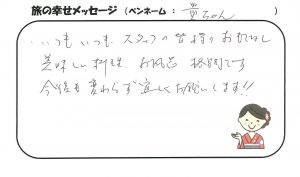 旅の幸せメッセージ（ペンネーム：豊ちゃん）
いつもいつもスタッフの皆様のおもてなし
美味しい料理 お風呂 格別です
今後も変わらず宜しくお願いします!!